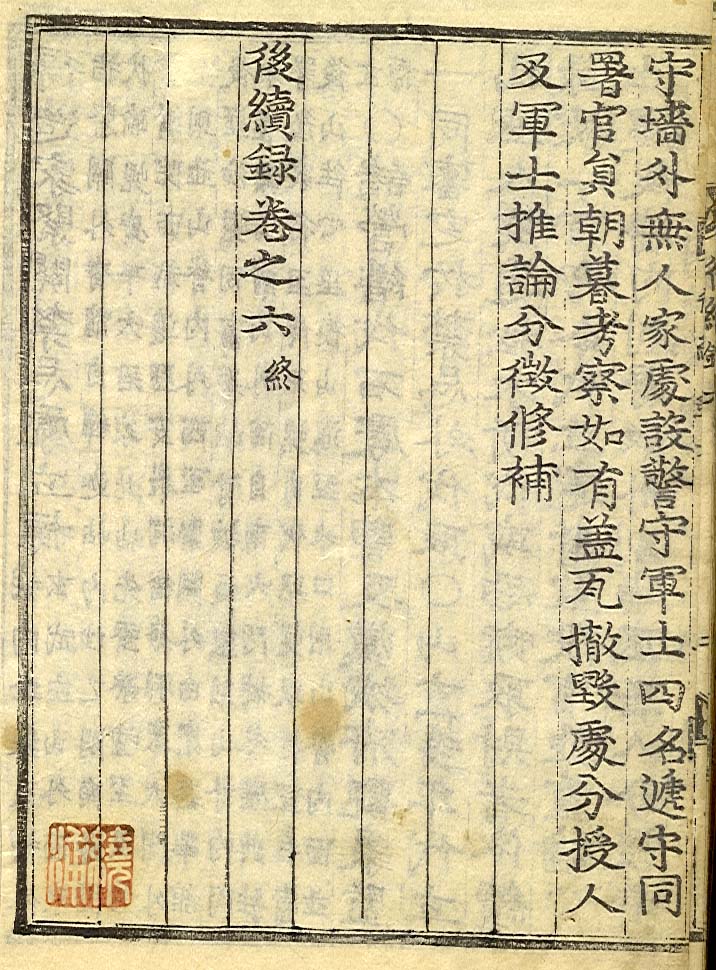 守墻外無人家處設警守軍士四名遞守同
署官員朝暮考察如有盖瓦撤毀處分授人
及軍士推論分徵修補
後續録卷之六 終